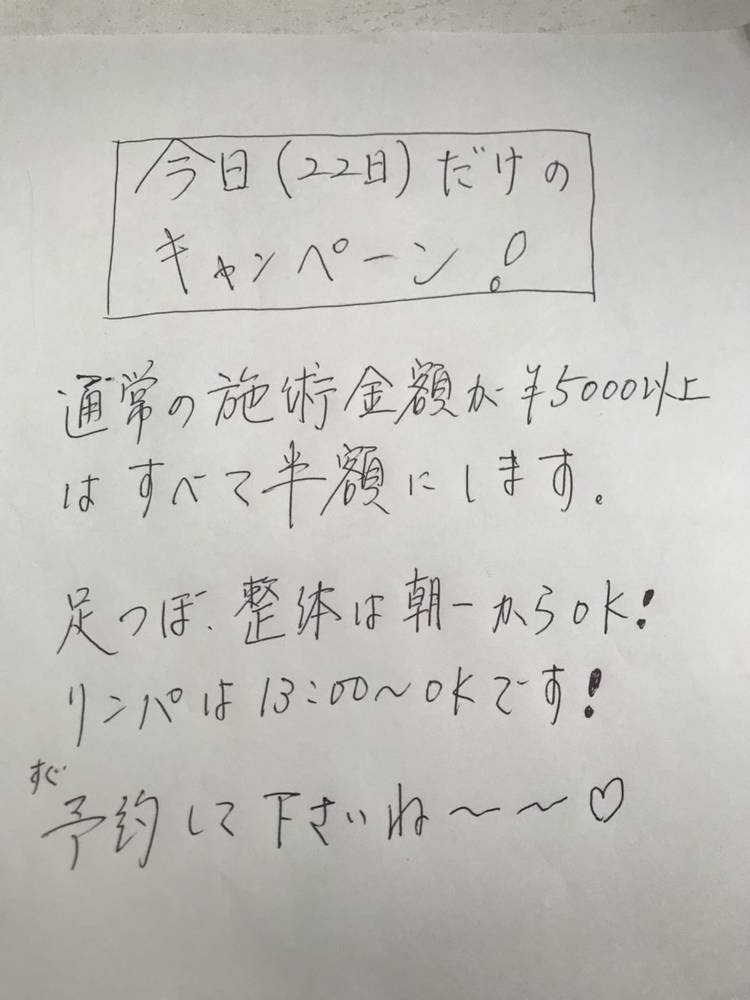 今日(22日)だけの
キャンペーン!
通常の施術金額が¥5000以上
はすべて半額にします。
足つぼ、整体は朝一からOK!
リンパは13:00〜OKです!
すぐ
予約して下さいね〜〜〜♡